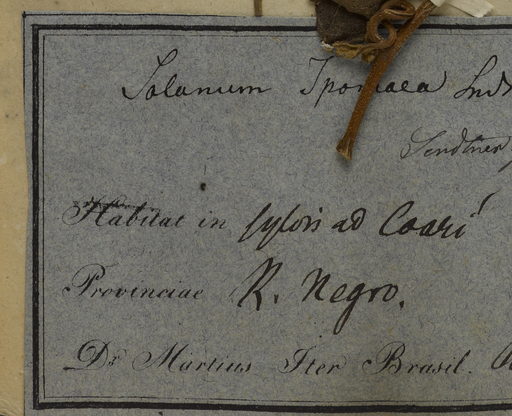 Solanum Ipomaea Sndt
Sendtner
Habitat in sylvis ad Coari
Provinciae R. Negro.
Dr Martius Iter Brasil.